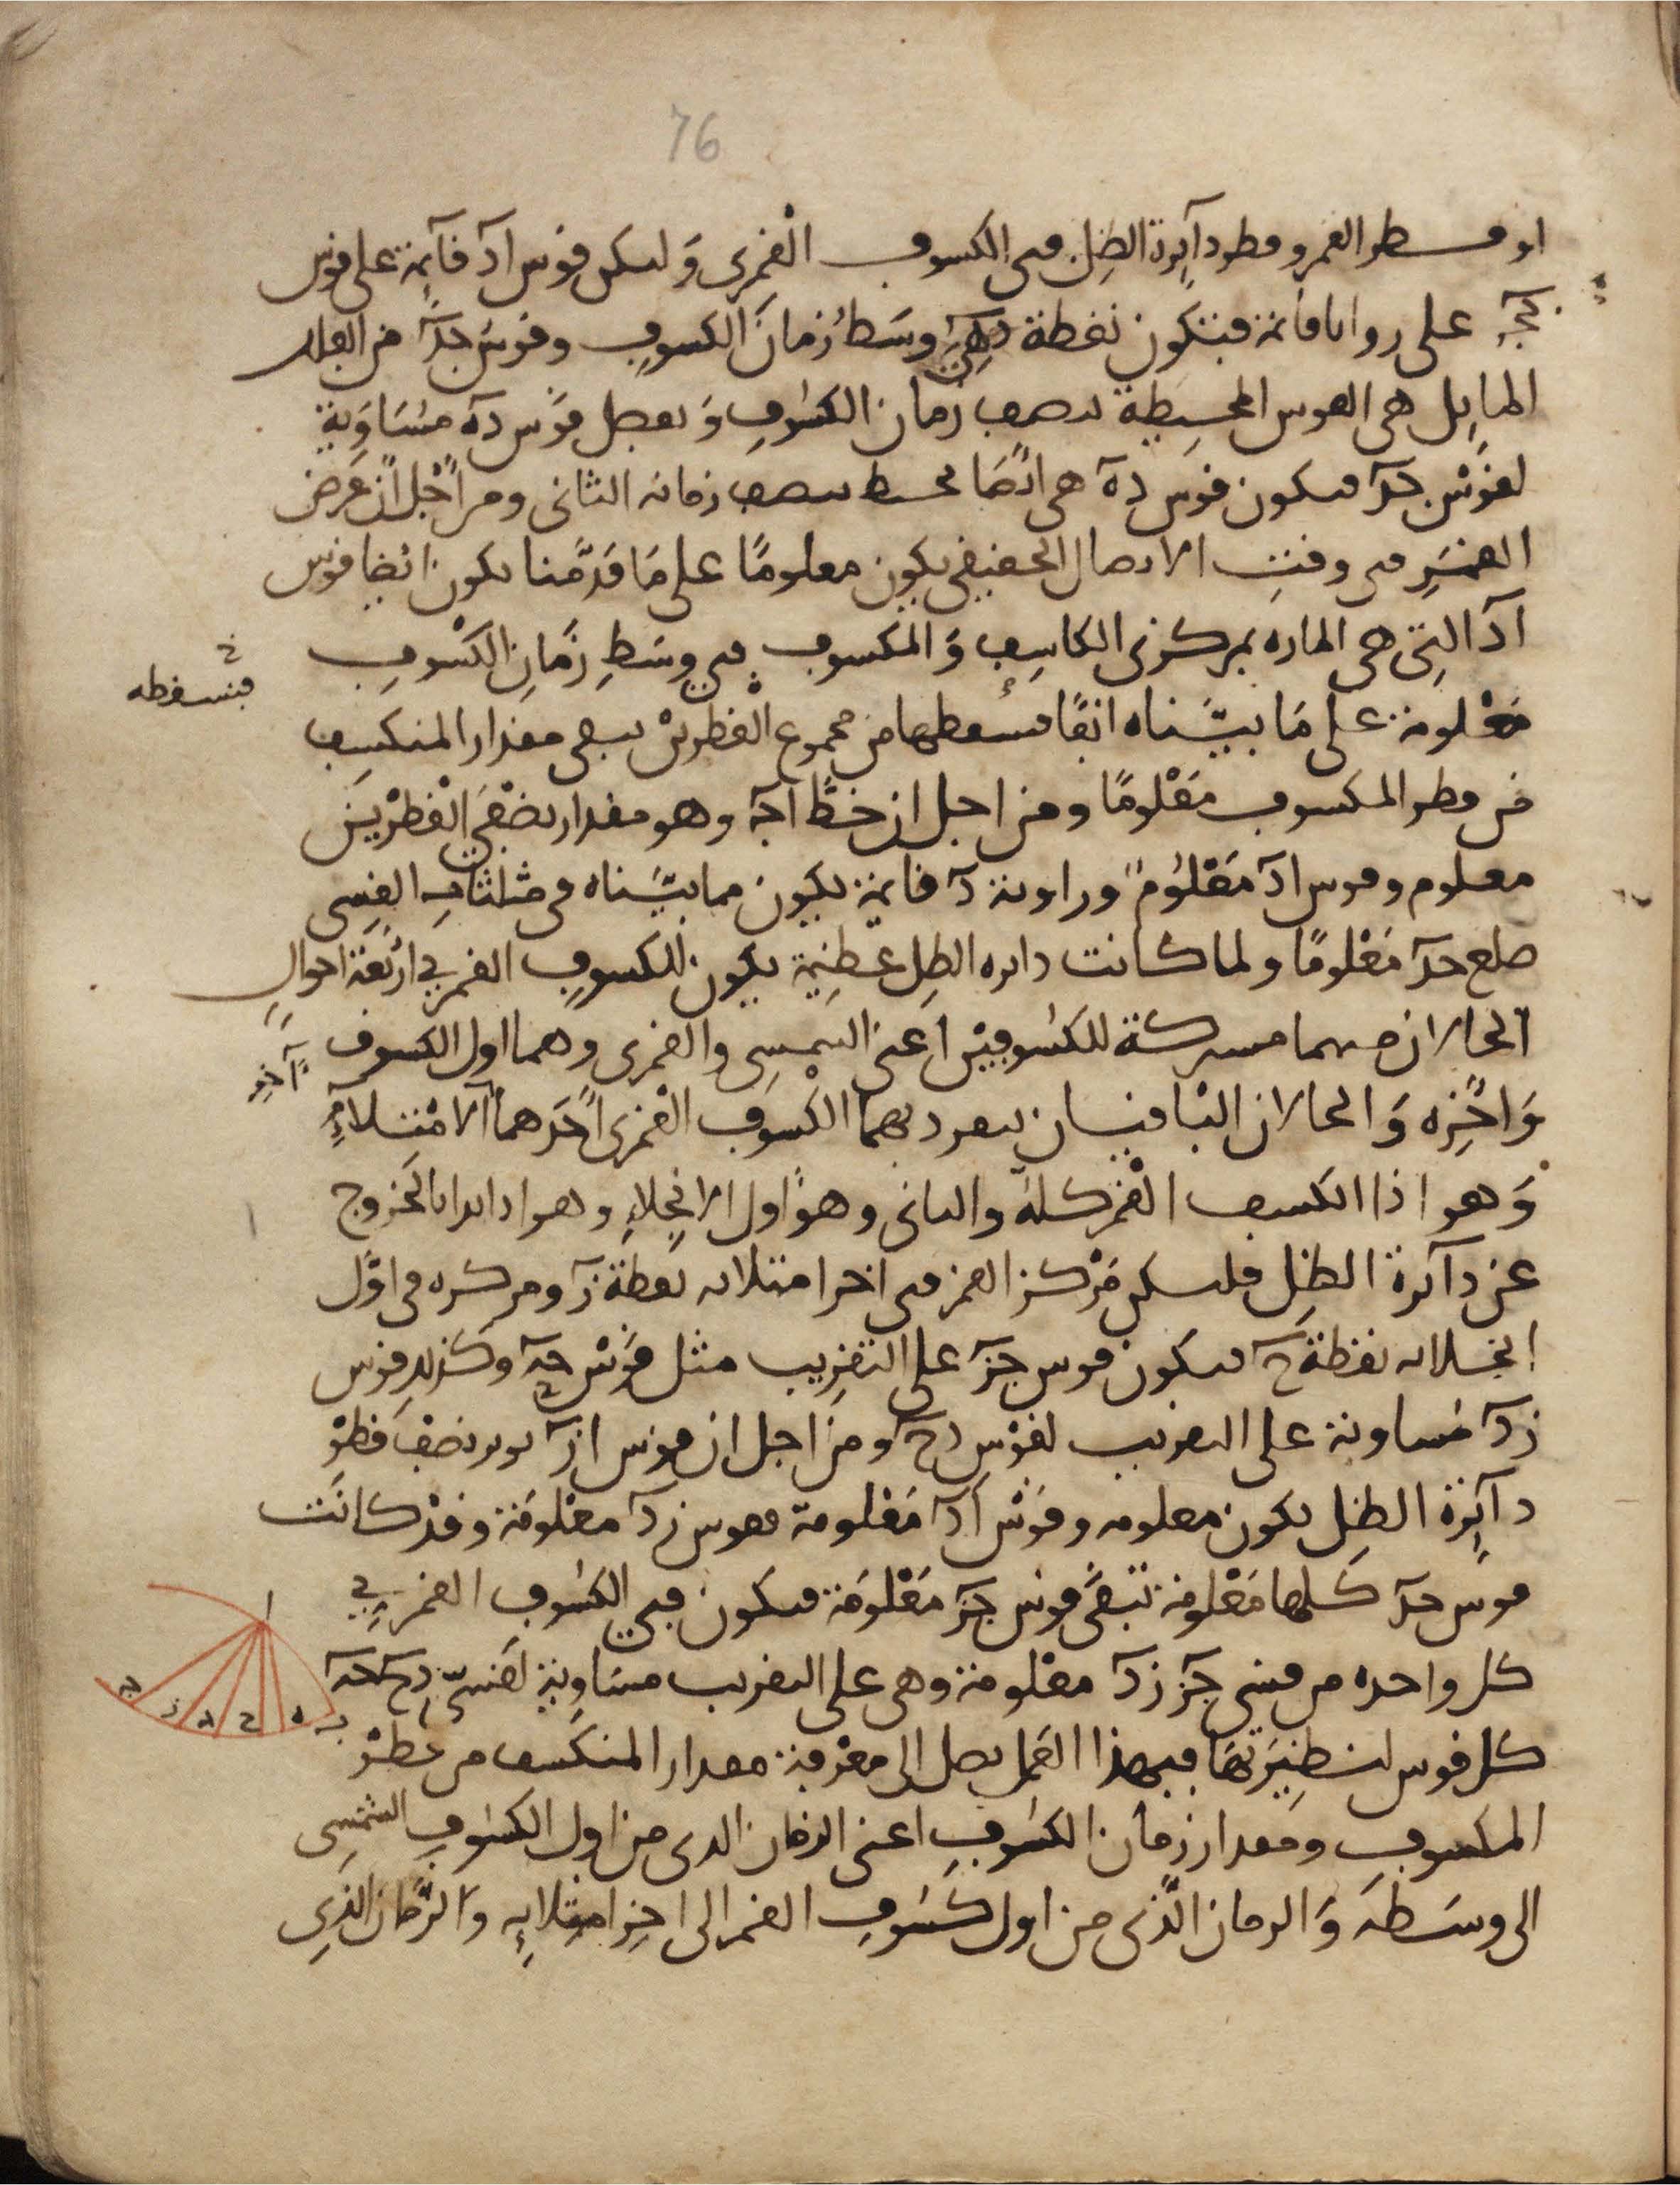 76
او قطر القمر وقطر دآيرة الظل فى الكسوف القمرى وَليكن قوس اد قآيمة على قوس
جه على زوايا قائمة فتكون نقطة د هى وسَط زمان الكسوف وقوس جد من الفلك
المايل هى القوس المحيطة بنصف زمان الكسوف وَنفصل قوس ده مسَاوية
لقوس جد فيكون قوس ده هى ايضا تحيط بنصف زمانه الثانى ومن اجل ان عرض
القمر فى وقت الاتصال الحقيقى يكون معلومًا على مَا قدّمنا يكون ايضا قوس
اد التى هى الماره بمركزى الكاسف وَالمكسوف فى وسَط زمَان الكسوف
فنسقطه
مَعْلومة على مَا بيّناه انفًا فنسقطها من مجموع القطرين يبقى مقدار المنكسف
من قطر المكسوف مَعْلومًا ومن اجل ان خط اج وهو مقدار نصْفَى القطْرين
معلوم وقوس اد مَعْلوم وزاوية د قايمة يكون مما بيّناه فى مثلثات القسى
ضلع جد مَعْلومًا ولما كانت دايره الظل عظيمة يكون للكسوف القمرى اربَعة احوال
الحالان منهما مشتركة للكسوفين اعنى الشمسى والقمرى وهما اول الكسوف
وَاخره وَالحالان الباقيتان ينفرد بهما الكسوف القمرى احَدهما الامْتلاء
وَهو اذا انكسف القمر كله والثانى وهو اول الانجلاء وهو اذا ابدا بالخروج
عن دآئرة الظل فليكن مَرْكز القمر فى اخر امتلائه نقطة ز ومركزه فى اوّل
انجلائه نقطة ح فيكون قوس جز على التقريب مثل قوس حه وكذلك قوس
زد مُساوية على التقريب لقوس دح ومن اجل ان قوس از نصف قطر
دآيرة الظل يكون معلومه وقوس اد مَعْلومة فقوس زد معْلومَة وقدْ كانت
قوس جد كلها مَعْلومة تبقى قوس جز مَعْلومَة فيكون فى الكسوف القمرى
كل واحده من قسى جز زد معْلومة وهى على التقريب مسَاوية لقسىّ دح حه
كل قوس لنظيرتها فبهذا العَمل نصل الى معْرفة مقدار المنكسف من قطر
المكسوف ومقدار زمان الكسوف اعنى الزمان الذى من اول الكسوف الشمسى
الى وسَطه وَالزمان الذى من اول كسوف القمر الى اخر امتلايه وَالزمان الذى
ا
ج ز د ح ه ب